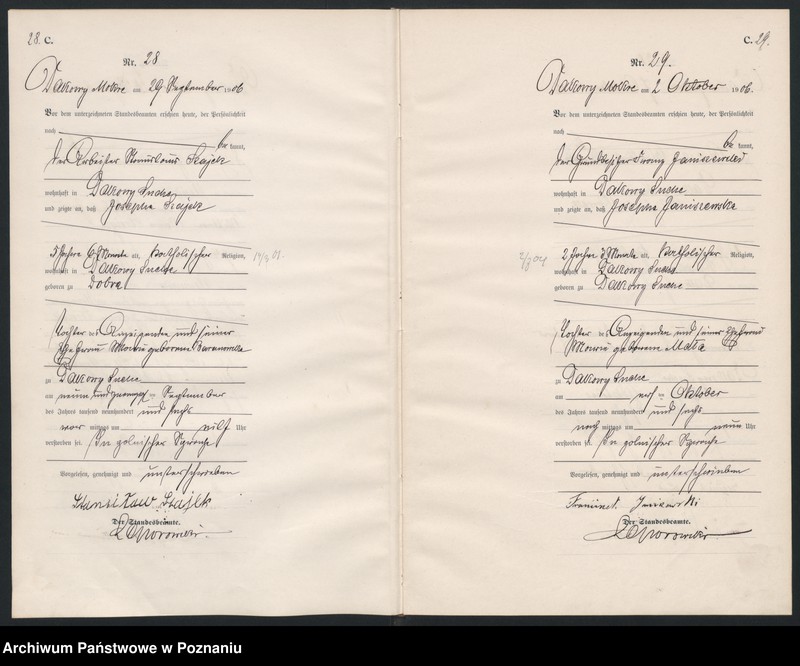 28. C.
Nr. 28
Dakowy Mokre am 29 September 1906
Vor dem unterzeichneten Standesbeamten erschien heute, der Persönlichkeit
nach
be kannt,
der Arbeiter Stanislaus Stajek
wohnhaft in Dakowy Suche
und zeigte an, daß Josepha Stajek
5 Jahre 6 Monate alt, katholischer Religion,
wohnhaft in Dakowy Suche
geboren zu Dobra
Tochter des Anzeigenden und seiner
Ehefrau geborene
zu Dakowy Suche
am neun und zwanzigsten September
des Jahres tausend neunhundert und sechs
vor mittags um elf Uhr
verstorben sei. In polnischer Sprache
Vorgelesen, genehmigt und unterschrieben
Stanisław Stajek
Der Standesbeamte.
C. 29.
Nr. 29.
Dakowy Mokre am 2 Oktober 1906.
Vor dem unterzeichneten Standesbeamten erschien heute, der Persönlichkeit
nach
be kannt,
der Grundbesitzer Franz Janiszewski
wohnhaft in Dakowy Suche
und zeigte an, daß Josepha Janiszewska
2 Jahre Monate alt, katholischer Religion,
wohnhaft in Dakowy Suche
geboren zu Dakowy Suche
Tochter des Anzeigenden und seiner Ehefrau
geborenen
zu Dakowy Suche
am ersten Oktober
des Jahres tausend neunhundert und sechs
nach mittags um neun Uhr
verstorben sei. In polnischer Sprache
Vorgelesen, genehmigt und unterschrieben
Der Standesbeamte.
Archiwum Państwowe w Poznaniu